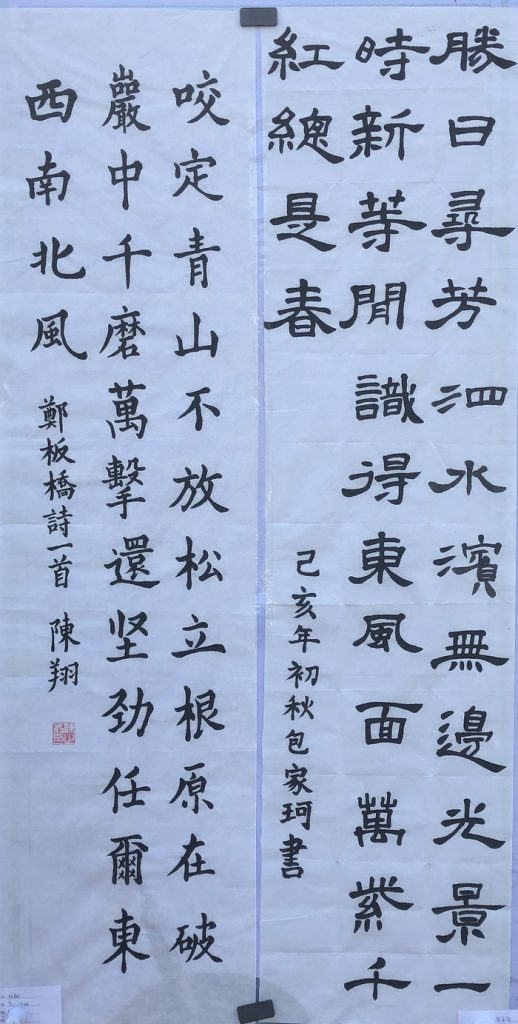 勝日尋芳泗水濱無邊光景一
時新等閒識得東風面萬紫千
紅總是春
己亥年初秋包家珂書
咬定青山不放松立根原在破
巖中千磨萬擊還坚劲任爾東
西南北風
鄭板橋詩一首 陳翔